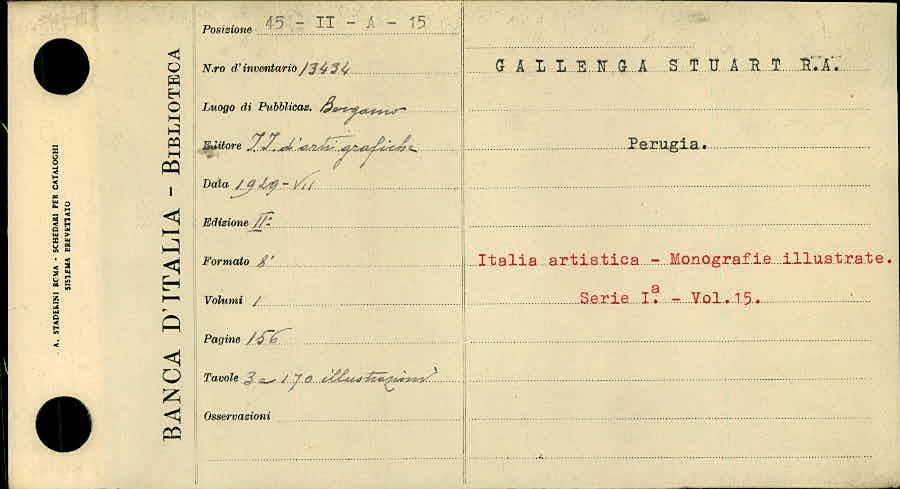 A. STADERINI ROMA - SCHEDARI PER CATALOGHI
SISTEMA BREVETTATO
BANCA D'ITALIA - BIBLIOTECA
Posizione 45 - II - A - 15
N.ro d'inventario 13434
Luogo di Pubblicaz. Bergamo
Editore I.I. d'arti grafiche
Data 1929-VII
Edizione IIª
Formato 8°
Volumi 1
Pagine 156
Tavole 3 e 170 illustrazioni
Osservazioni
GALLENGA STUART R.A.
Perugia.
Italia artistica - Monografie illustrate.
Serie I.ª - Vol.15.